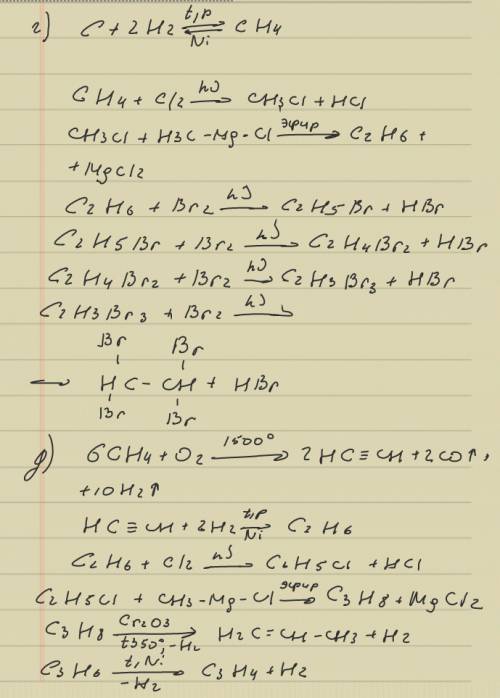 г) C + 2H2 ⇄ (t,p / Ni) CH4
CH4 + Cl2 →(hν) CH3Cl + HCl
CH3Cl + H3C-Mg-Cl →(эфир) C2H6 +
+ MgCl2
C2H6 + Br2 →(hν) C2H5Br + HBr
C2H5Br + Br2 →(hν) C2H4Br2 + HBr
C2H4Br2 + Br2 →(hν) C2H3Br3 + HBr
C2H3Br3 + Br2 →(hν)
Br Br
→ HC - CH + HBr
Br Br
д) 6CH4 + O2 →(1500°) 2HC≡CH + 2CO↑,
+10H2↑
HC≡CH + 2H2 →(t,p / Ni) C2H6
C2H6 + Cl2 →(hν) C2H5Cl + HCl
C2H5Cl + CH3-Mg-Cl →(эфир) C3H8 + MgCl2
C3H8 →(Cr2O3 / t350°, -H2) H2C=CH-CH3 + H2
C3H6 →(t, Ni / -H2) C3H4 + H2